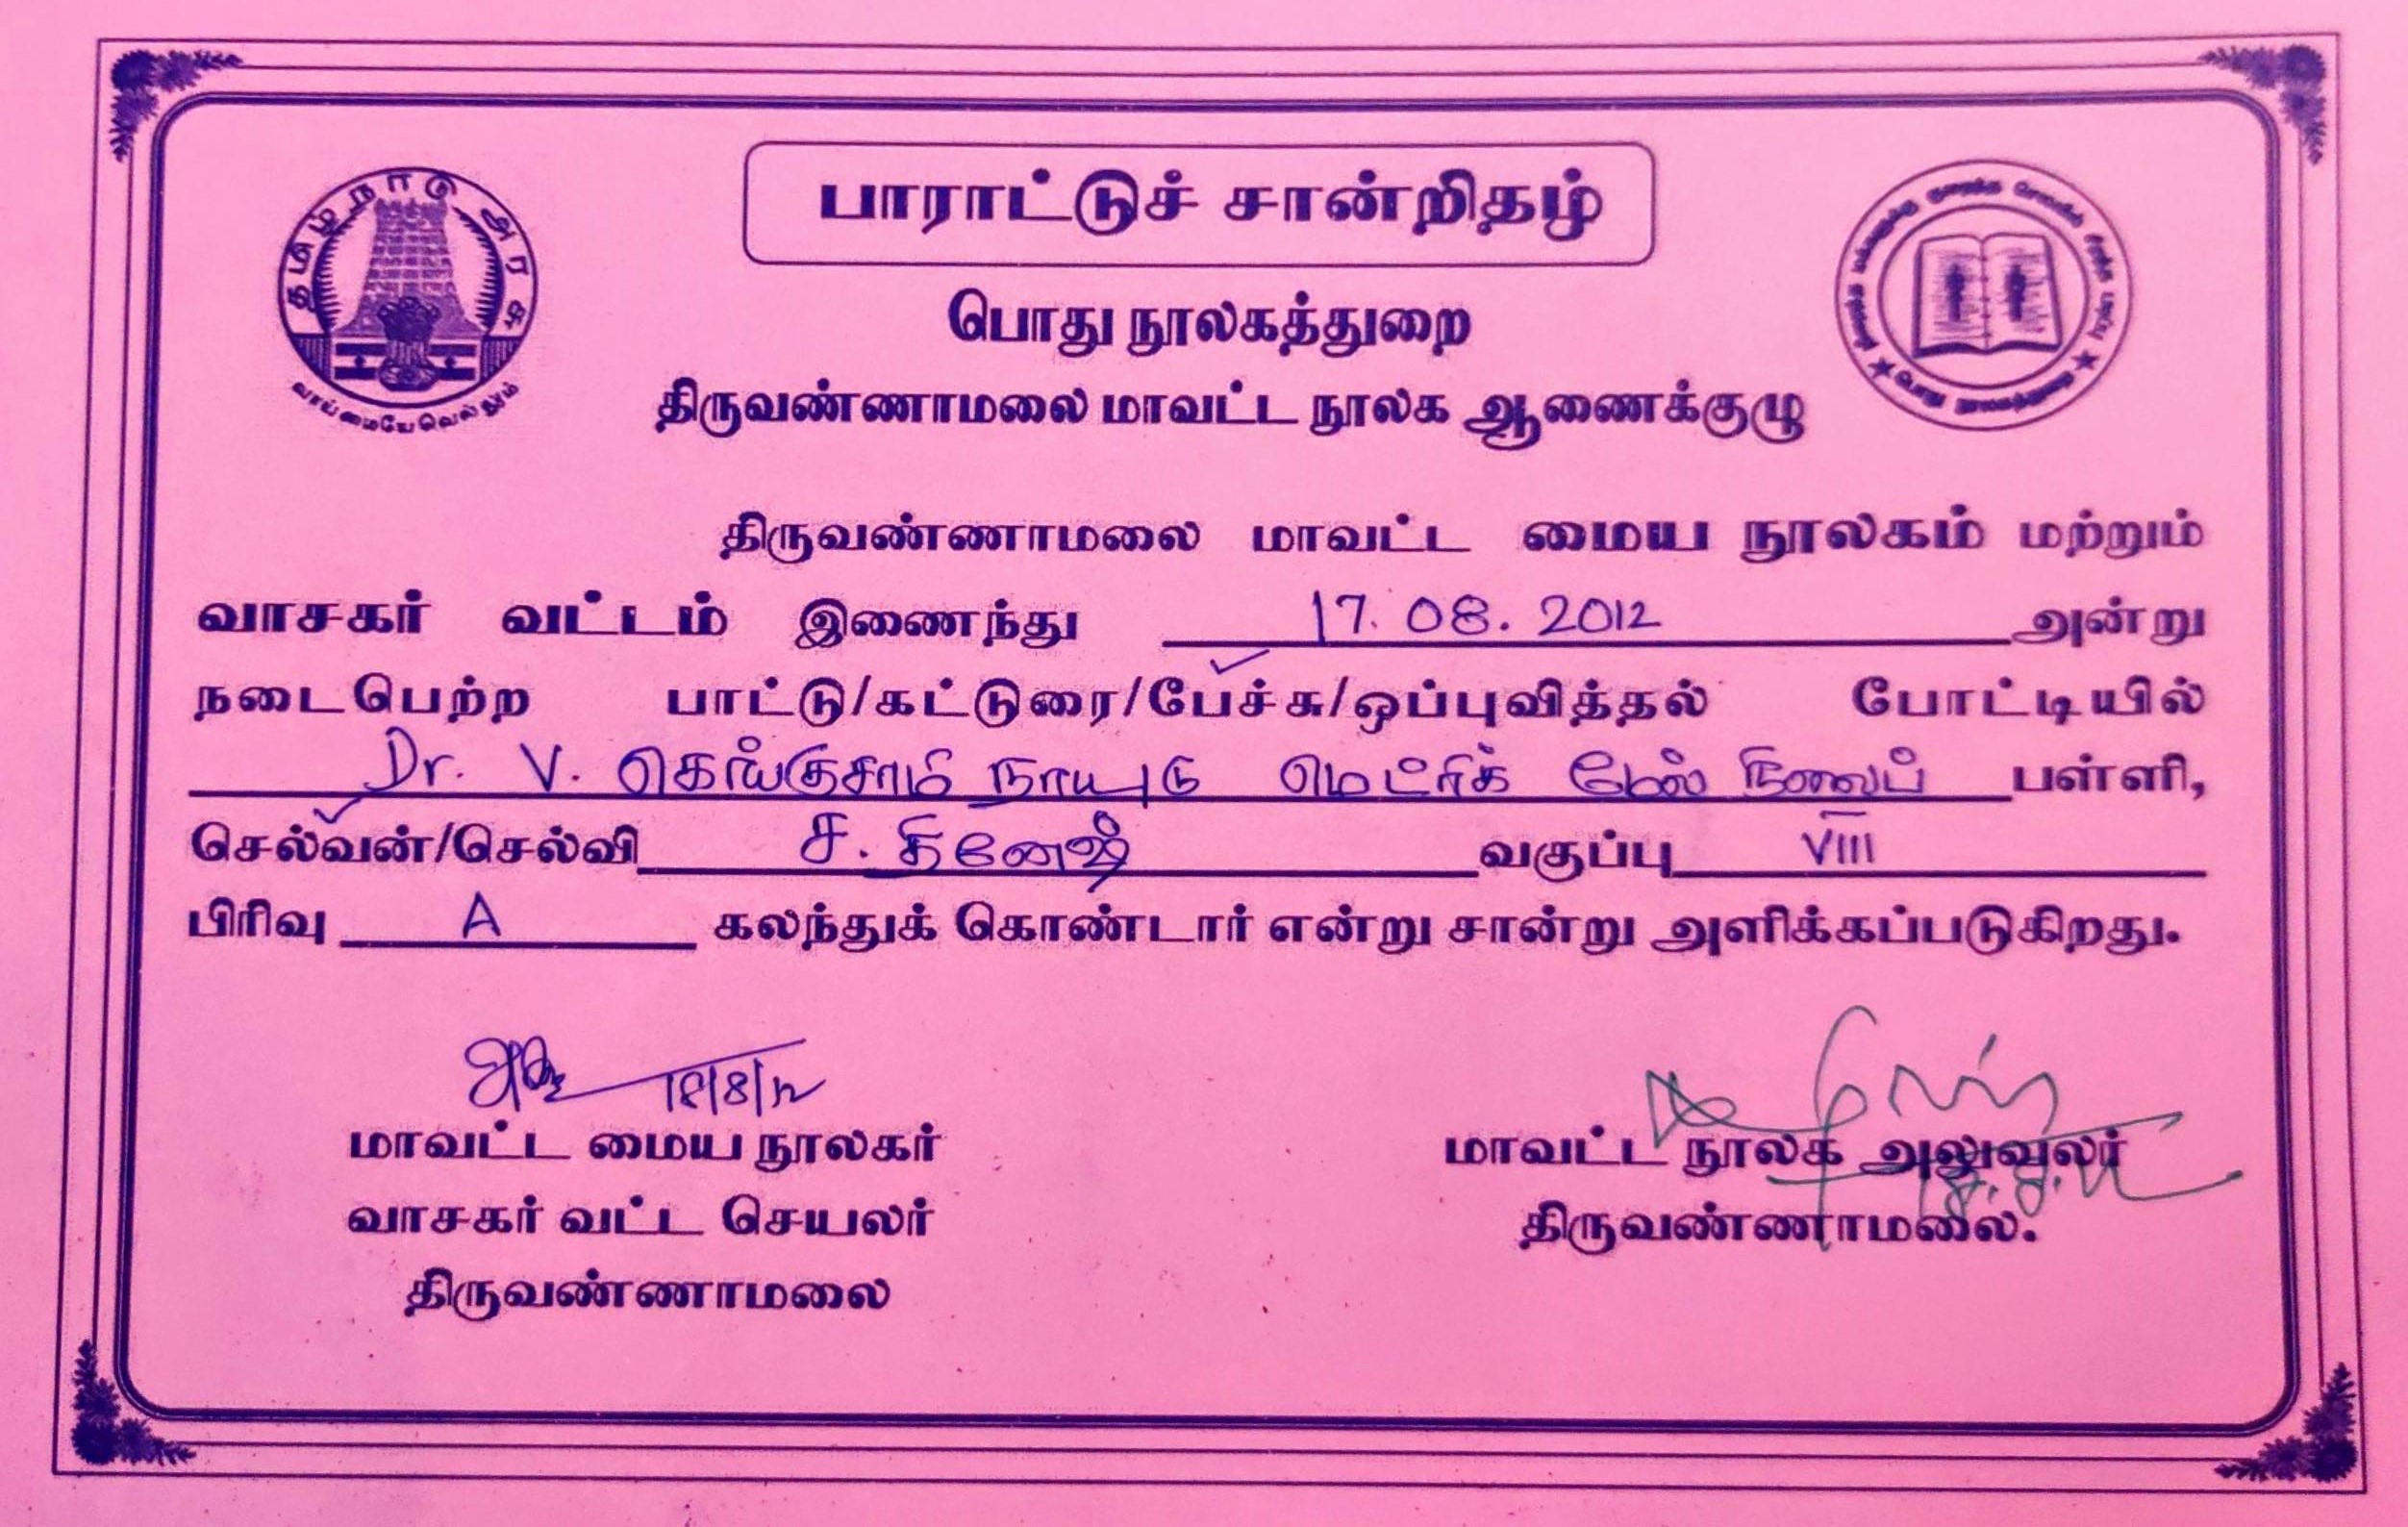 பாராட்டுச் சான்றிதழ்
தமிழ்நாடு அரசு
வாய்மையே வெல்லும்
பொது நூலகத்துறை
பொது நூலகத்துறை
திருவண்ணாமலை மாவட்ட நூலக ஆணைக்குழு
திருவண்ணாமலை மாவட்ட மைய நூலகம் மற்றும்
வாசகர் வட்டம் இணைந்து 17.08.2012 அன்று
நடைபெற்ற பாட்டு/கட்டுரை/பேச்சு/ஒப்புவித்தல் போட்டியில்
Dr. V. கெங்குசாமி நாயுடு மெட்ரிக் மேல் நிலைப் பள்ளி,
செல்வன்/செல்வி ச. தினேஷ் வகுப்பு VIII
பிரிவு A கலந்துக் கொண்டார் என்று சான்று அளிக்கப்படுகிறது.
18/8/12
மாவட்ட மைய நூலகர்
வாசகர் வட்ட செயலர்
திருவண்ணாமலை
மாவட்ட நூலக அலுவலர்
திருவண்ணாமலை.